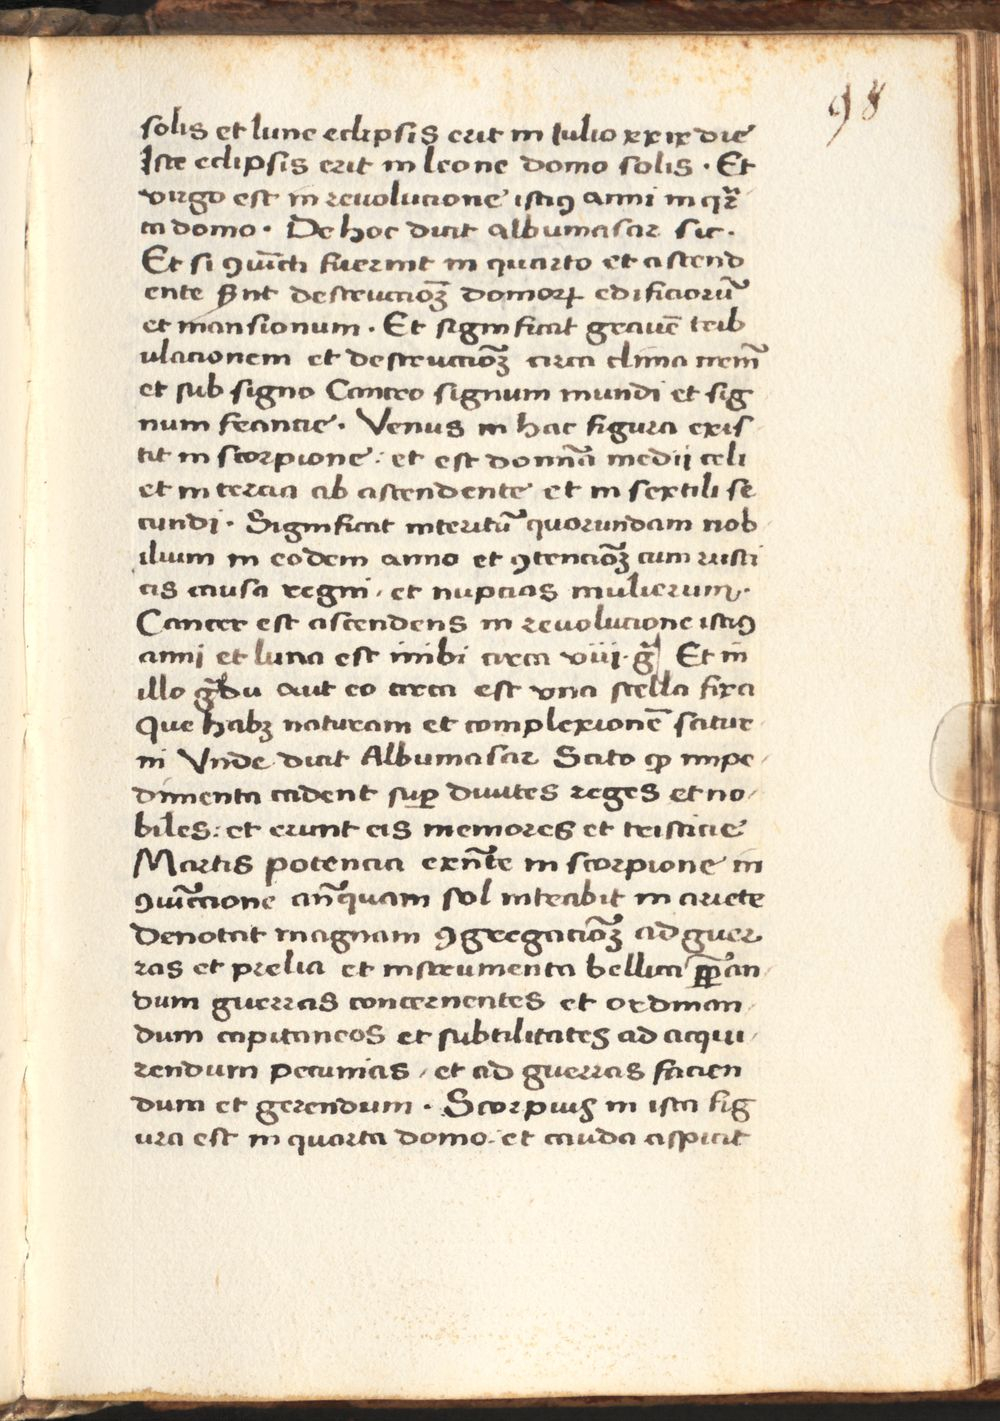 98
solis et lune eclipsis erit in Iulio xxix die
Iste eclipsis erit in leone domo solis · Et
virgo est in reuolucione istiꝯ anni in qr̃
ta domo · De hoc dicit albumasar sic ·
Et si ꝯiũcti fuerint in quarto et ascend
ente st destructioꝫ̃ domoꝝ edificiorũ
et mansionum · Et significat grauẽ trib
ulacionem et destructioꝫ̃ circa clima
et sub signo Cancro signum mundi et sig
num francie · Venus in hac figura exis
tit in scorpione : et est dominã medij celi
et in tercia ab ascendente et in sextili se
cundi · Significat interitũ quorundam nob
ilium in eodem anno et ꝯtencioꝫ̃ cum rusti
cis causa regni , et nupcias mulierum ·
Cancer est ascendens in reuolucione istiꝯ
anni et luna est inibi circa viii · g̃ Et in
illo g̃du aut eo circa est vna stella fixa
Que habꝫ naturam et complexionẽ satur
ni Vnde dicit Albumasar Scito ꝙ impe
dimenta cadent suꝑ diuites reges et no
biles : et erunt eis memores et tristicie
Martis potencia exñte in scorpione in
ꝯiũccione añquam sol intrabit in ariete
Denotat magnam ꝯgregacioꝫ̃ ad guer
ras et prelia et instrumenta bellica ꝑpan
dum guerras concernentes et ordinan
dum capitaneos et subtilitates ad acqui
rendum pecunias , et ad guerras facien
dum et gerendum · Scorpius in ista fig
ura est in quarta domo · et cauda aspicit